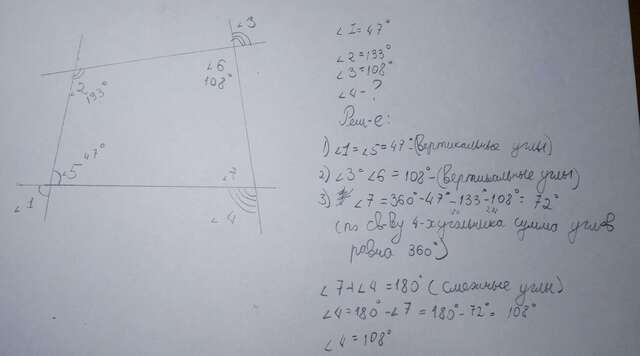 ∠3
∠6
108°
∠2
133°
∠5
47°
∠7
∠1
∠4
∠1=47°
∠2=133°
∠3=108°
∠4-?
Реш-е:
1) ∠1=∠5=47°-(вертикальные углы)
2) ∠3=∠6=108°-(вертикальные углы)
3) ∠7=360°-47°-133°-108°=72°
(по св-ву 4-хугольника сумма углов
равна 360°)
∠7+∠4=180° (смежные углы)
∠4=180°-∠7=180°-72°=108°
∠4=108°